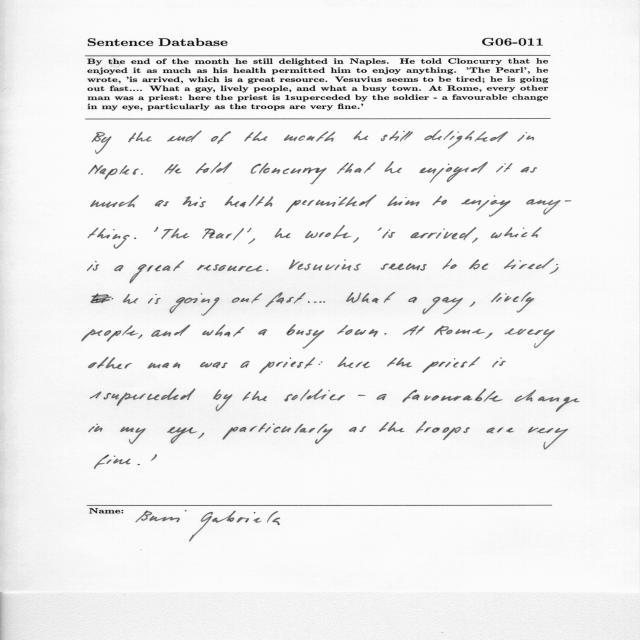 Sentence Database G06-011
By the end of the month he still delighted in Naples. He told Cloncurry that he
enjoyed it as much as his health permitted him to enjoy anything. 'The Pearl', he
wrote, 'is arrived, which is a great resource. Vesuvius seems to be tired; he is going
out fast.... What a gay, lively people, and what a busy town. At Rome, every other
man was a priest: here the priest is 1superceded by the soldier - a favourable change
in my eye, particularly as the troops are very fine.'
By the end of the month he still delighted in
Naples. He told Cloncurry that he enjoyed it as
much as his health permitted him to enjoy any-
thing. 'The Pearl', he wrote, 'is arrived, which
is a great resource. Vesuvius seems to be tired;
he is going out fast.... What a gay, lively
people, and what a busy town. At Rome, every
other man was a priest: here the priest is
1superceded by the soldier - a favourable change
in my eye, particularly as the troops are very
fine.'
Name: Gabriela